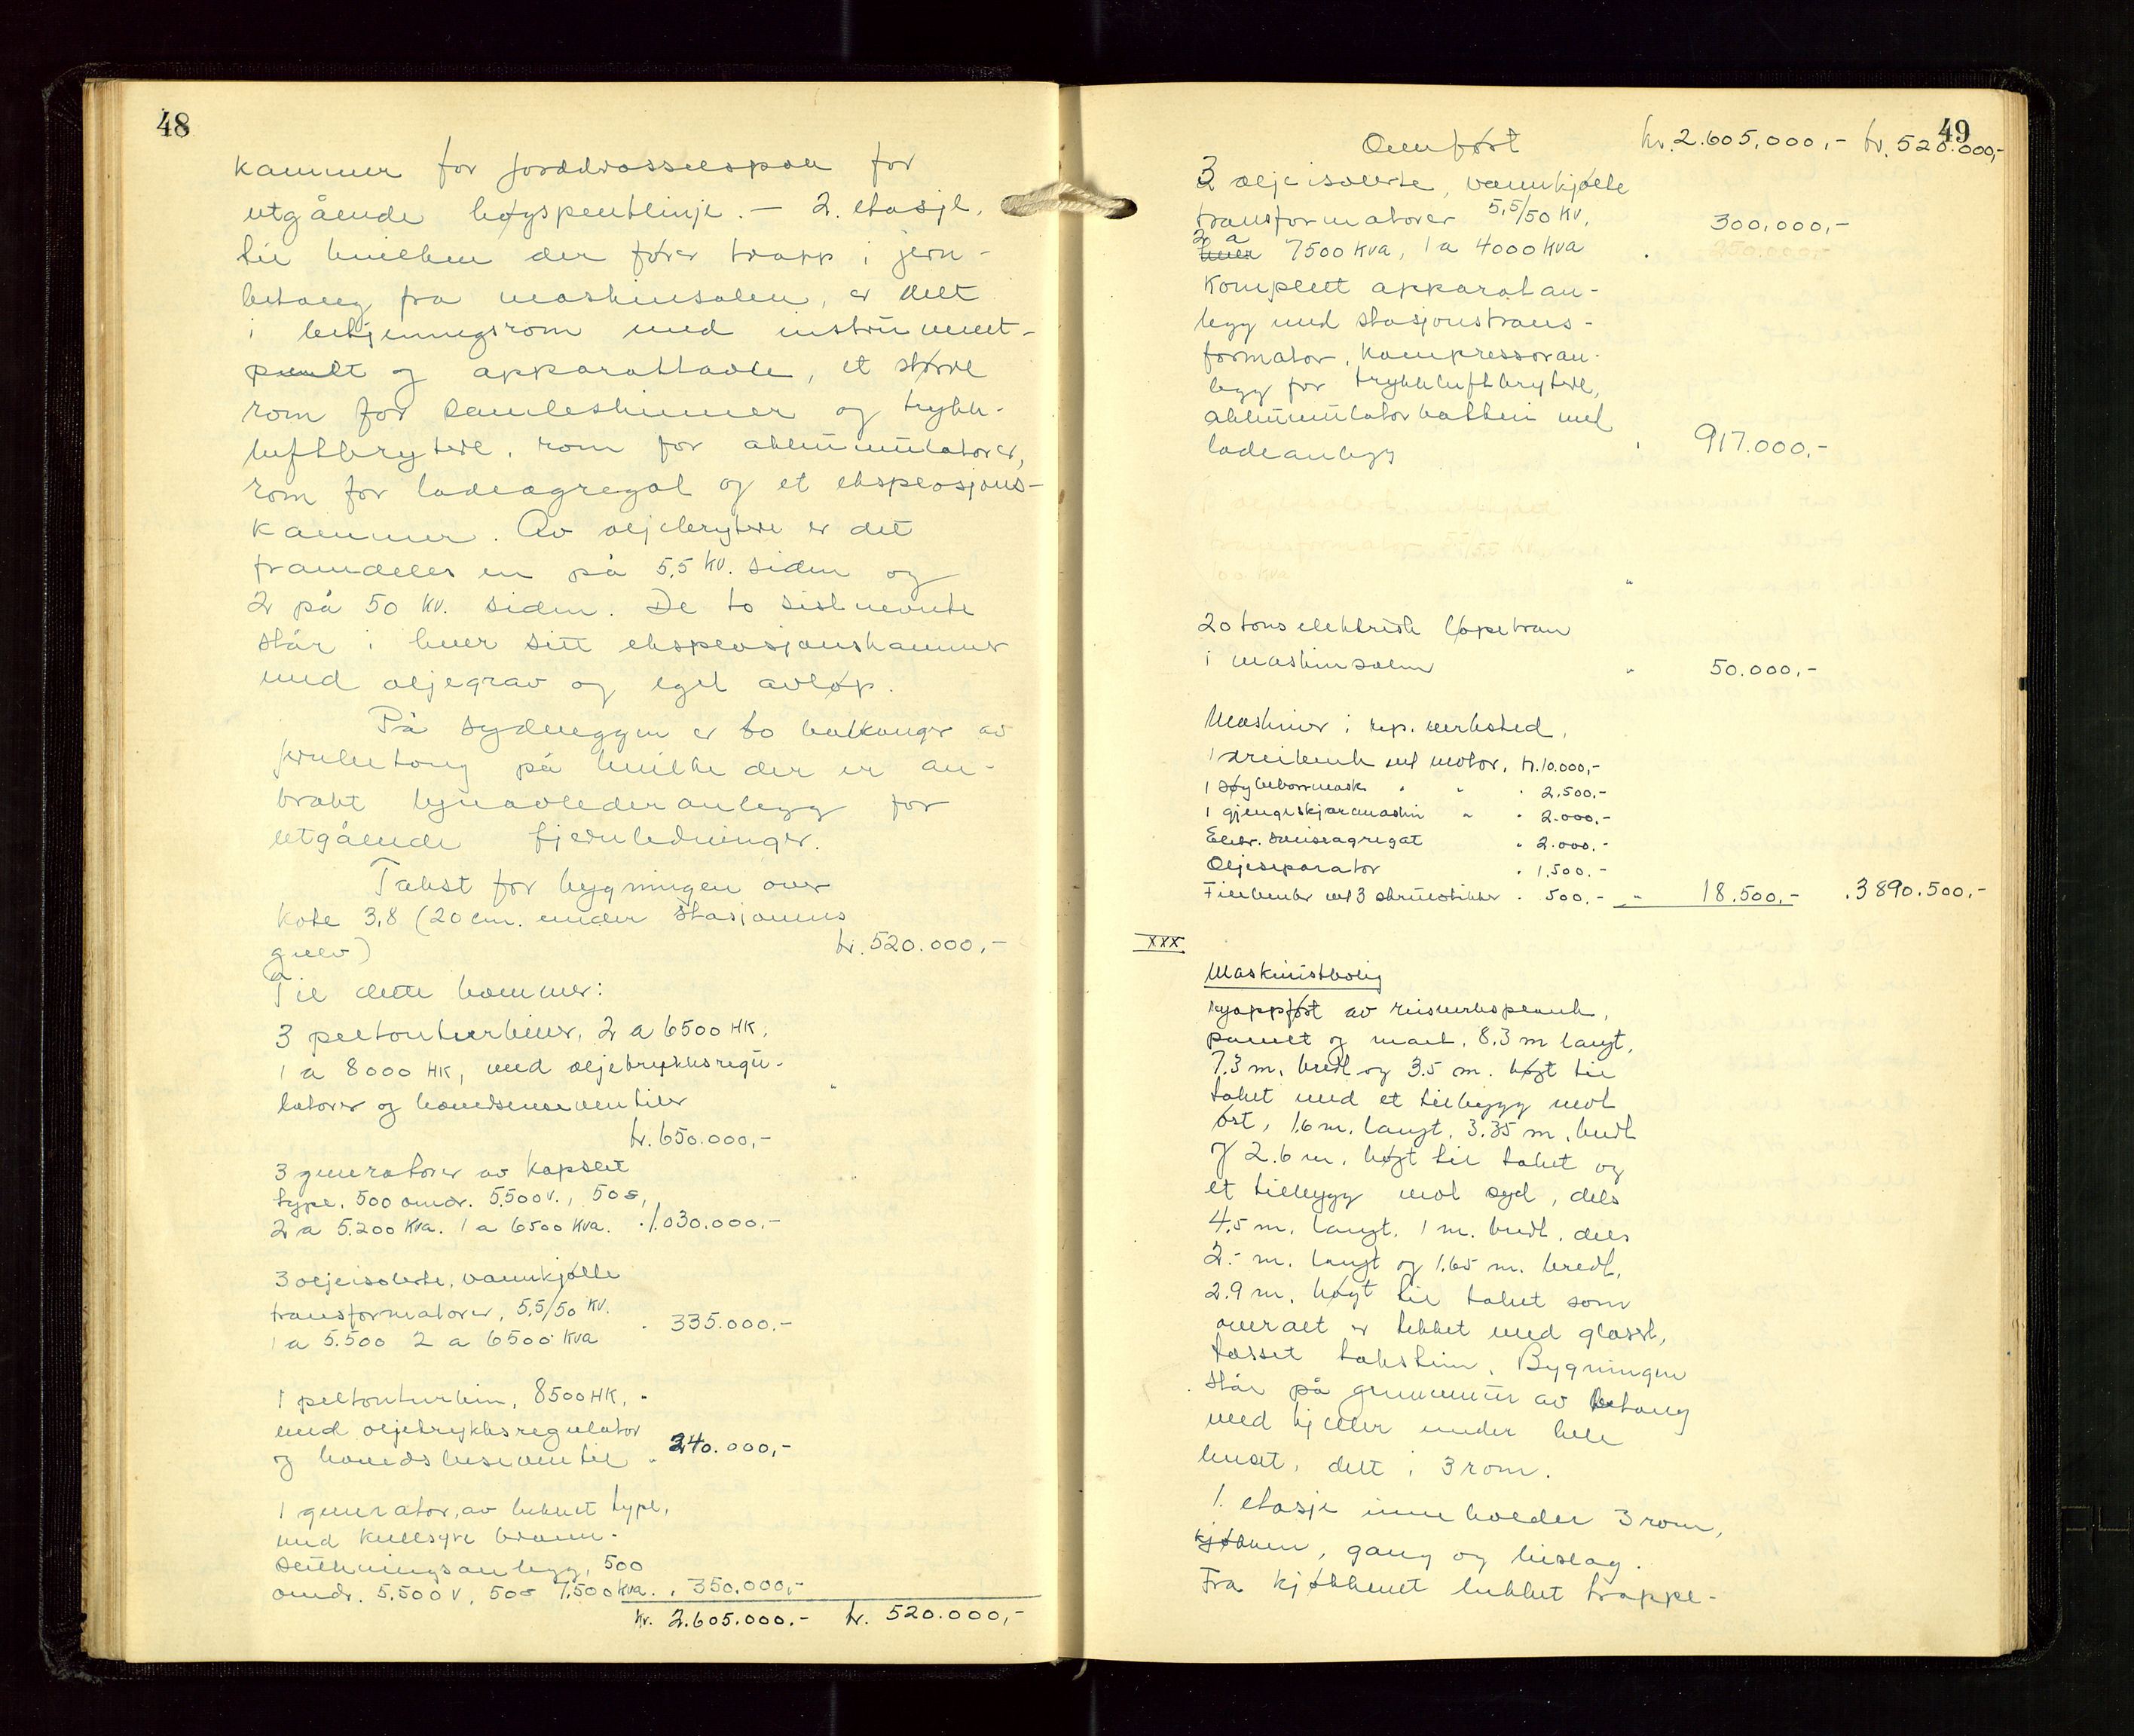 48
kammer for jorddrosselspole for
utgående høyspentlinje. — 2. etasje,
til hvilken der fører trapp i jern-
betong fra maskinsalen, er delt
i betjeningsrom med instrument-
pult og apparattavle, et større
rom for samleskinner og trykk-
luftbrytere, rom for akkumulatorer,
rom for ladeagregat og et eksplosjons-
kammer. Av oljebrytere er det
framdeles en på 5,5 KV. siden og
2 på 50 KV. siden. De to sistnevnte
står i hver sitt eksplosjonskammer
med oljegrav og eget avløp.
På sydveggen er to balkonger av
jernbetong på hvilke der er an-
brakt lynavlederanlegg for
utgående fjernledninger.
Takst for bygningen over
kote 3,8 (20 cm. under stasjonens
gulv) kr. 520.000,-
Til dette kommer:
3 peltonturbiner, 2 a 6500 HK,
1 a 8000 HK, med oljetrykksregu-
latorer og hovedsluseventiler
kr. 650.000,-
3 generatorer av kapslet
type, 500 omdr. 5.500 V., 50 ~,
2 a 5.200 KVa. 1 a 6500 KVa. . 1.030.000.-
3 oljeisolerte, vannkjølte
transformatorer, 5,5/50 KV.
1 a 5.500 2 a 6500 KVa . 335.000.-
1 peltonturbin, 8500 HK, -
med oljetrykksregulator
og hovedsluseventil . 240.000,-
1 generator, av lukket type,
med kullsyre brann-
slukningsanlegg, 500
omdr. 5.500 V, 50 ~ 7.500 KVa. . 350.000,-
Kr. 2.605.000.- kr. 520.000,-
49
Overført kr. 2.605.000,- kr. 520.000,-
3 oljeisolerte, vannkjølte
transformatorer 5,5/50 KV,
2 a
hver 7500 KVa, 1 a 4000 KVa . 300.000,-
Komplett apparatan-
legg med stasjonstrans-
formator, kompressoran-
legg for trykkluftbrytere,
akkumulatorbatteri med
ladeanlegg " 917.000,-
20 tons elektrisk løpekran
i maskinsalen " 50.000,-
Maskiner i rep. verksted,
1 dreibenk med motor, kr. 10.000,-
1 søyleboremask. " " . 2.500,-
1 gjengeskjæremaskin " " 2.000.-
Elektr. sveiseagregat " 2.000.-
Oljeseparator . 1.500.-
Filebenk med 3 skrustikker . 500.- " 18.500,- . 3890.500,-
XXX
Maskinistbolig
oppført av reisverksplank,
panelt og malt, 8.3 m langt,
7.3 m. bredt og 3.5 m. høgt til
taket med et tilbygg mot
øst, 1.6 m. langt, 3.35 m. bredt
og 2.6 m. høgt til taket og
et tilbygg mot syd, dels
4,5 m. langt, 1 m. bredt, dels
2.- m. langt og 1.65 m. bredt,
2.9 m. høgt til taket som
overalt er tekket med glasert,
falsset takstein. Bygningen
står på grunnmur av betong
med kjeller under hele
huset, delt i 3 rom.
1. etasje inneholder 3 rom,
kjøkken, gang og bislag.
Fra kjøkkenet lukket trappe-